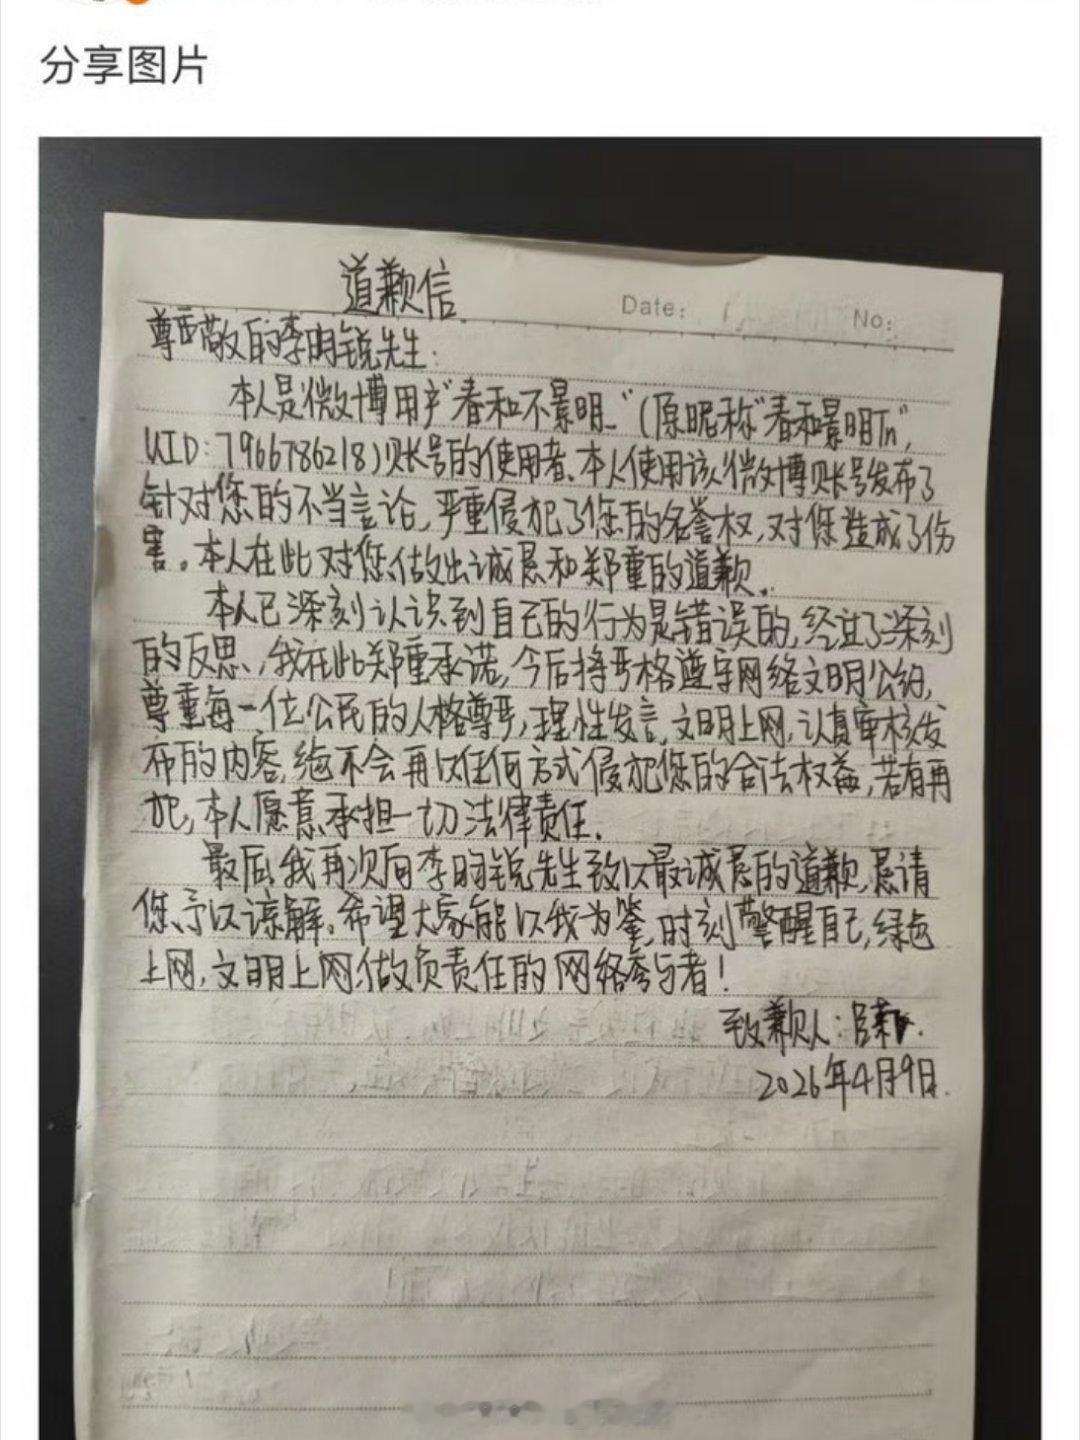 分享图片
道歉信
Date:
No:
尊敬的李昀锐先生：
本人是微博用户"春和不景明_"(原昵称"春和景明Tn"，
UID:7966786218)账号的使用者、本人使用该微博账号发布了
针对您的不当言论，严重侵犯了您的名誉权，对您造成了伤
害。本人在此对您做出诚恳和郑重的道歉。
本人已深刻认识到自己的行为是错误的，经过了深刻
的反思，我在此郑重承诺，今后将严格遵守网络文明公约，
尊重每一位公民的人格尊严，理性发言，文明上网，认真审核发
布的内容，绝不会再以任何方式侵犯您的合法权益，若有再
犯，本人愿意承担一切法律责任。
最后，我再次向李昀锐先生致以最诚恳的道歉，恳请
您予以谅解。希望大家能以我为鉴，时刻警醒自己，绿色
上网，文明上网，做负责任的网络参与者！
致歉人：
2026年4月9日.